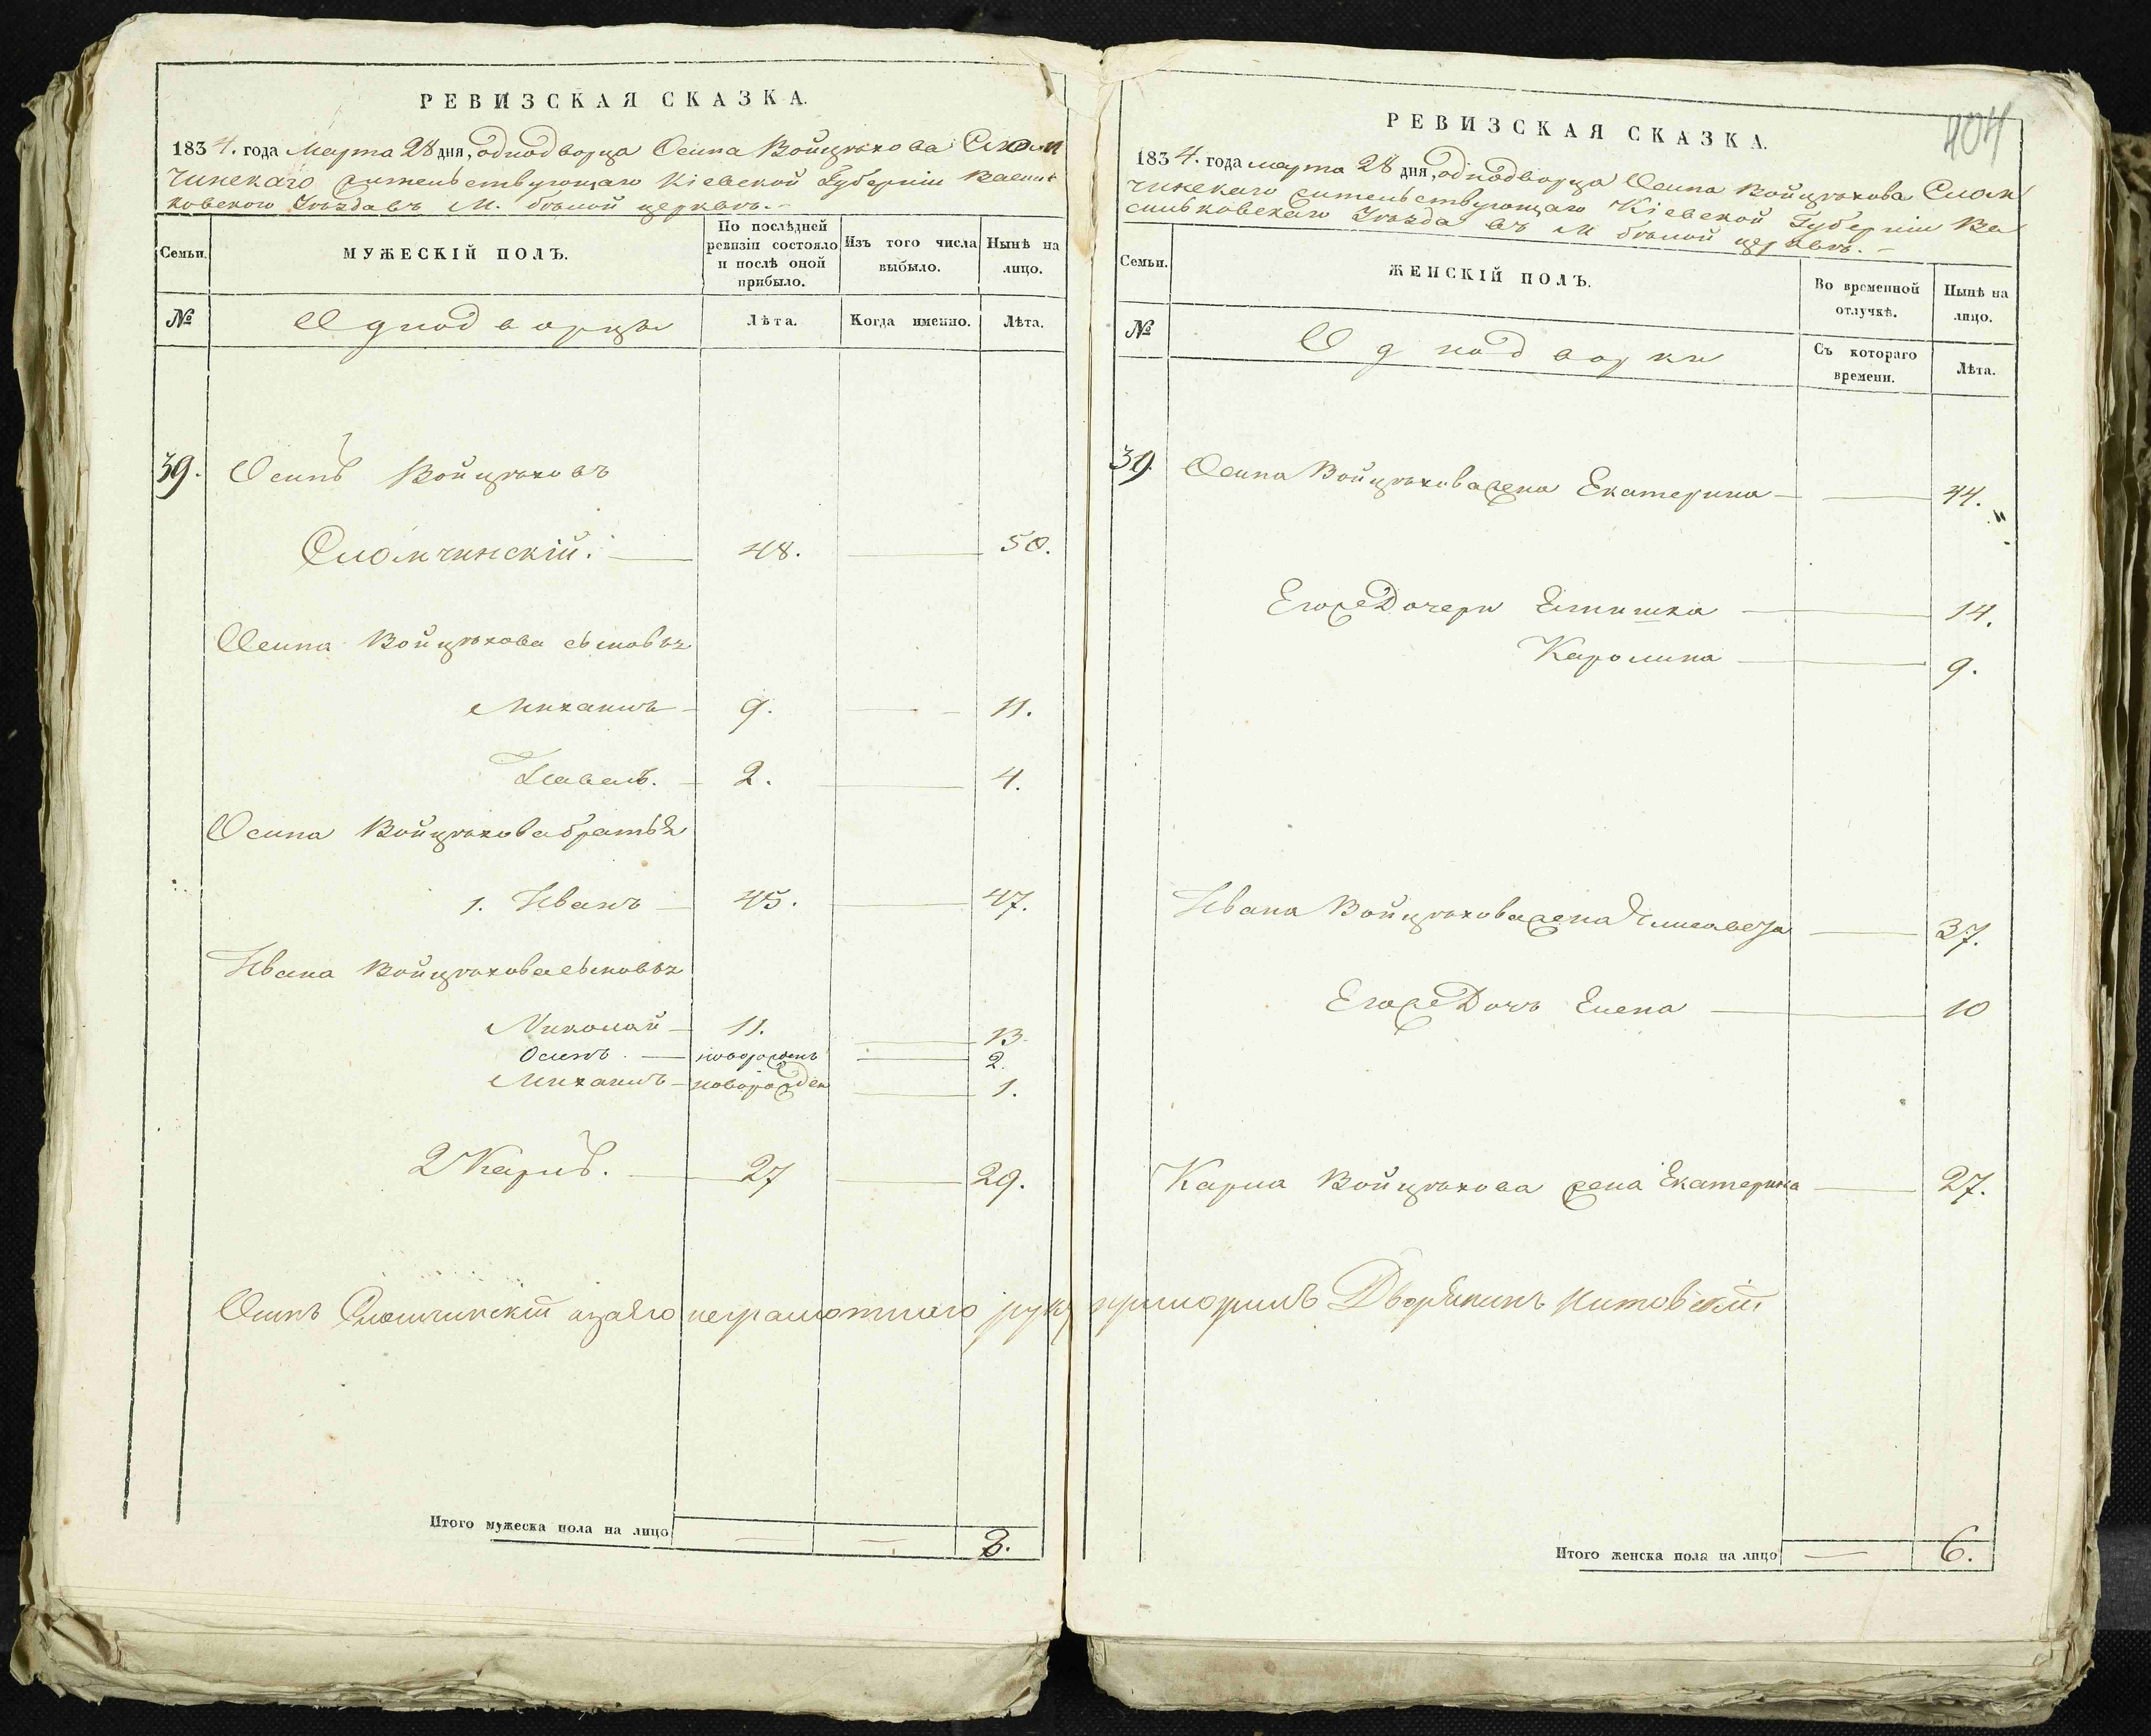 РЕВИЗСКАЯ СКАЗКА.
1834. года Марта 28 дня, однодворца Осипа Войцѣхова Сломчинскаго жительствующаго Кіевской Губерніи Васильковскаго Уѣзда въ М. бѣлой церквѣ.
Семьи.
МУЖЕСКІЙ ПОЛЪ.
По послѣдней ревизіи состояло и послѣ оной прибыло.
Изъ того числа выбыло.
Нынѣ на лицо.
№
Однодворцы
Лѣта.
Когда именно.
Лѣта.
39. Осипъ Войцѣховъ
Сломчинскій. — 48. — 50.
Осипа Войцѣхова сыновья
Михаилъ — 9. — 11.
Павелъ. — 2. — 4.
Осипа Войцѣхова братья
1. Иванъ — 45. — 47.
Ивана Войцѣхова сыновья
Николай — 11. — 13.
Осипъ. — новорожденъ — 2.
Михаилъ — новорожден — 1.
2 Карлъ. — 27 — 29.
Осипъ Сломчинскій а за его неграмотнаго руку приложилъ Дворянинъ
Итого мужеска пола на лицо — — 8.
404
РЕВИЗСКАЯ СКАЗКА.
1834. года марта 28 дня, однодворца Осипа Войцѣхова Сломчинскаго жительствующаго Кіевской Губерніи Васильковскаго Уѣзда въ М бѣлой церквѣ. —
Семьи.
ЖЕНСКІЙ ПОЛЪ.
Во временной отлучкѣ.
Нынѣ на лицо.
№
Однодворки
Съ котораго времени.
Лѣта.
39 Осипа Войцѣхова жена Екатерина — — 44.
Егоже Дочери — 14.
Каролина — 9.
Ивана Войцѣхова жена Елисавета — 37.
Егоже Дочь Елена — 10
Карла Войцѣхова жена Екатерина — 27.
Итого женска пола на лицо — 6.